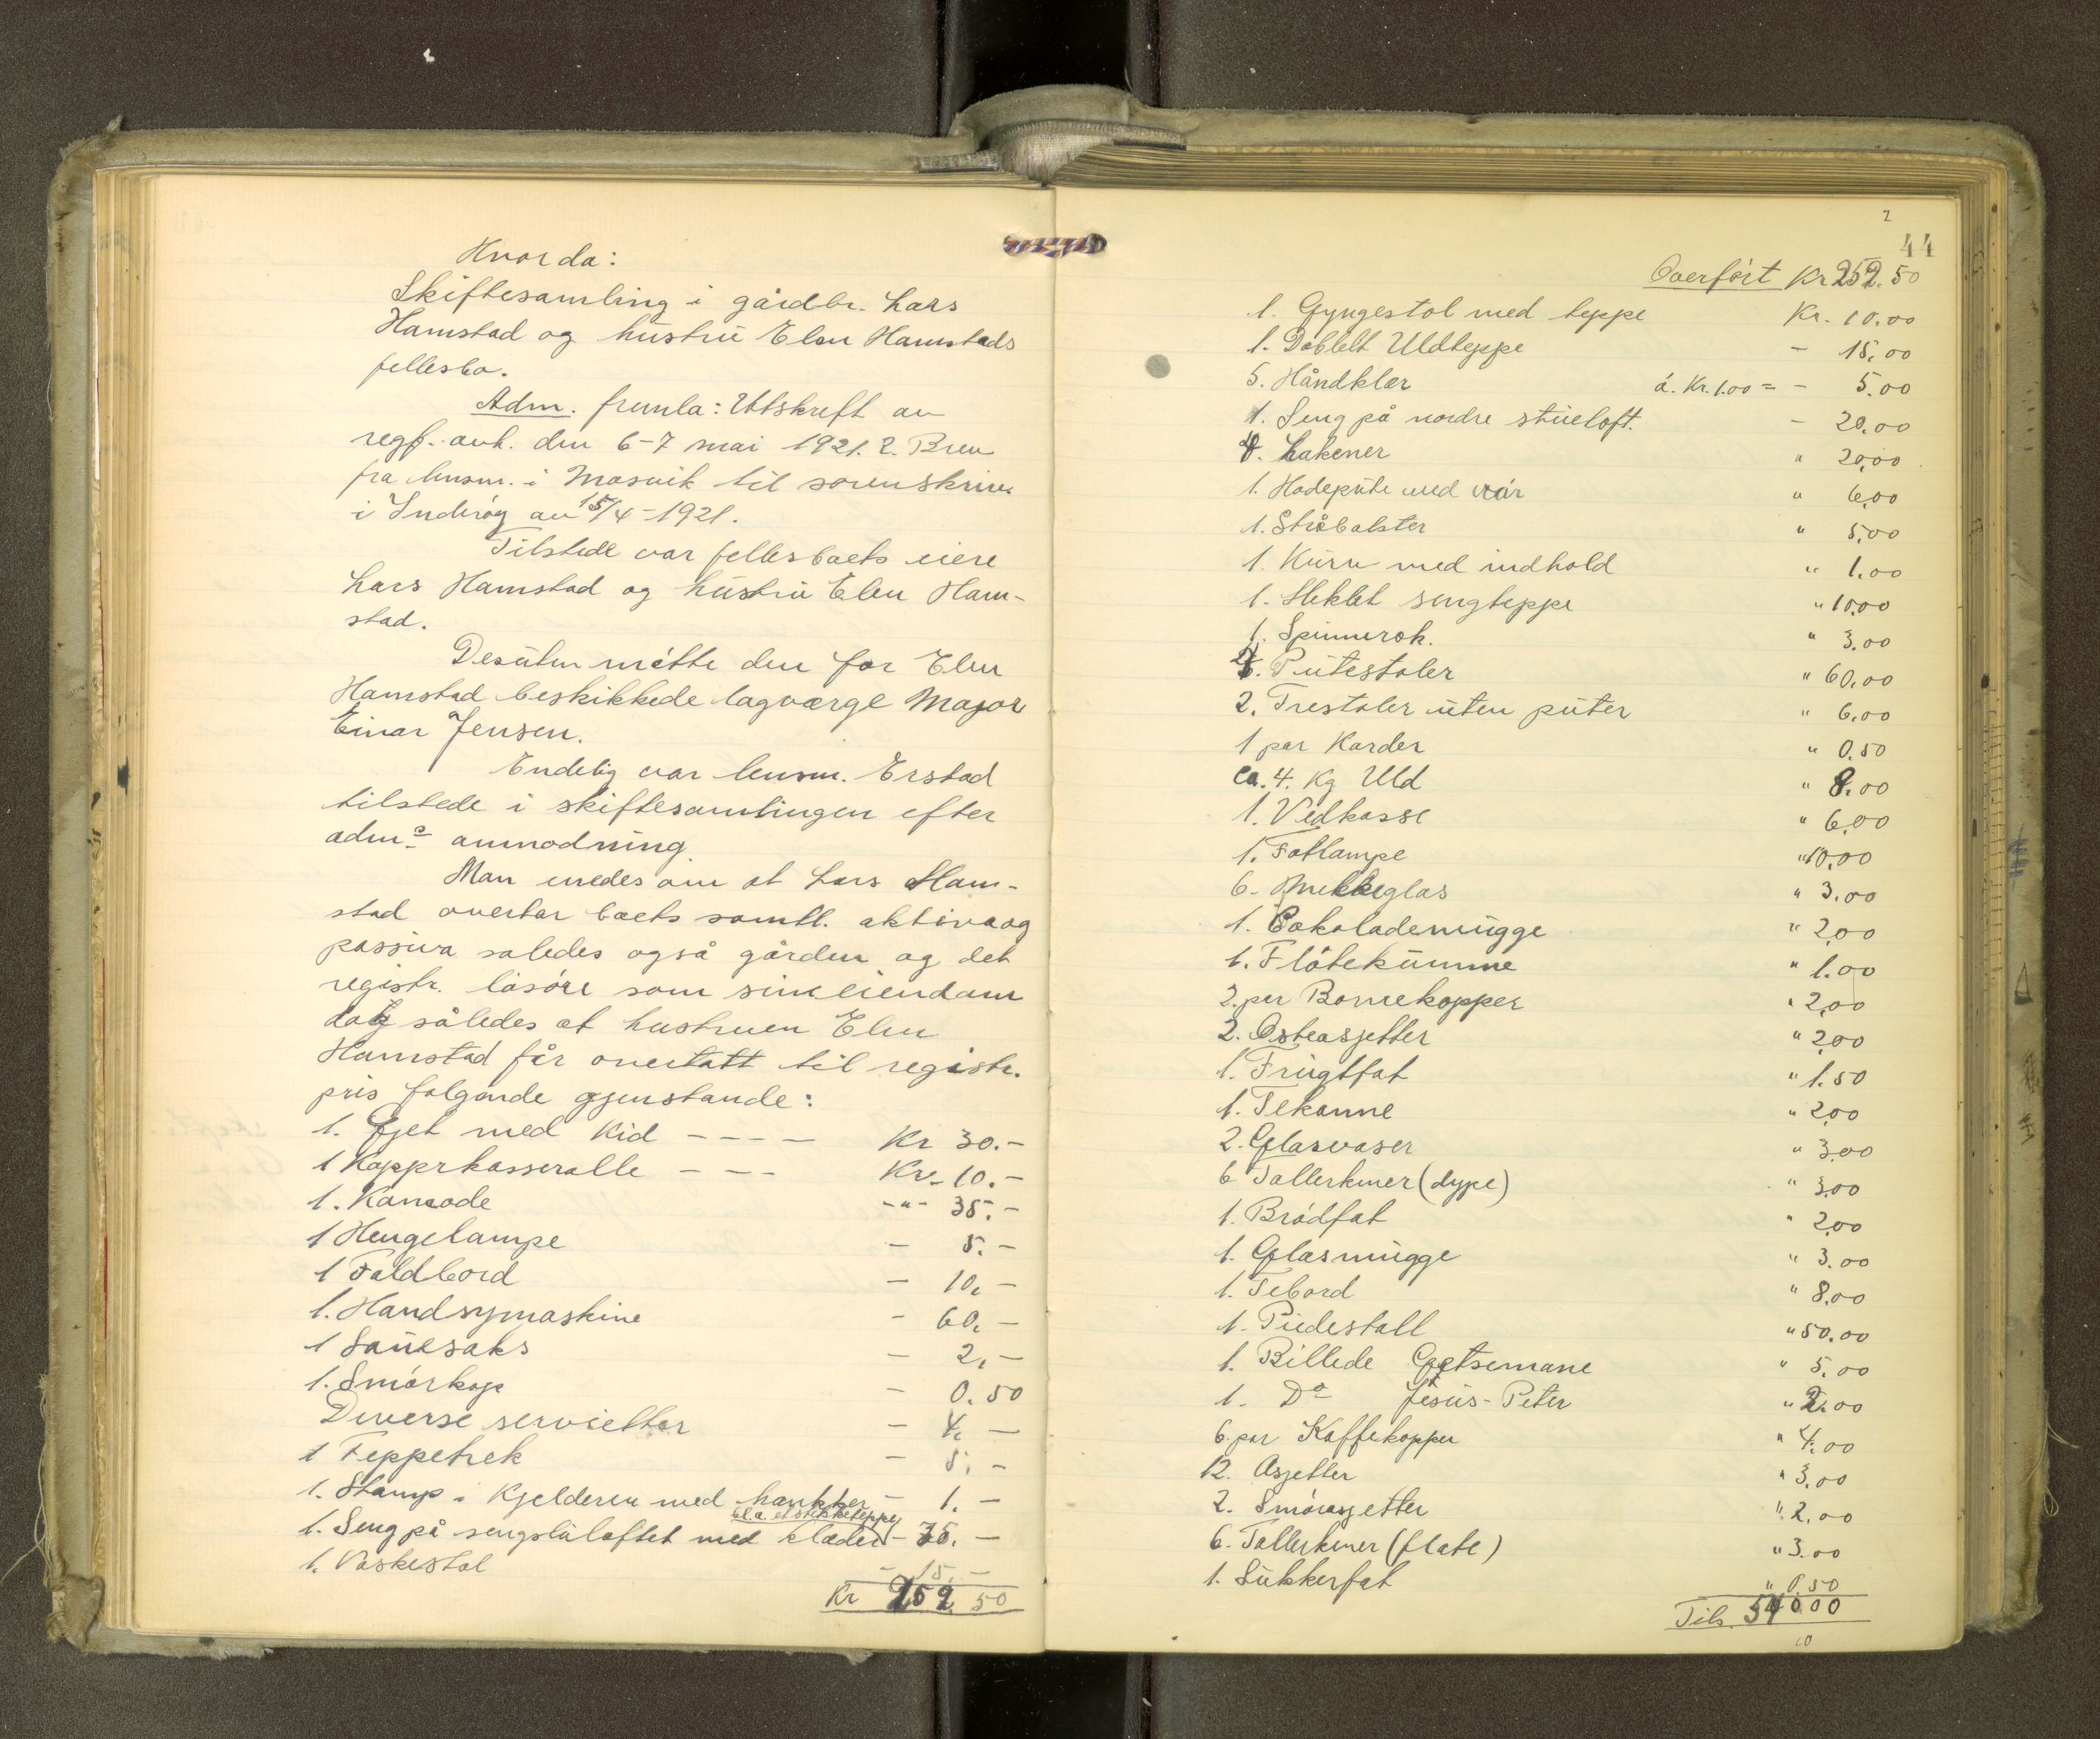 Hvorda:
Skiftesamling i gårdbr. Lars
Hamstad og hustru Elen Hamstads
fellesbo.
Adm. fremla: Utskrift av
regf. avh. den 6-7 mai 1921. 2. Brev
fra lensm. i Mosvik til sorenskriv.
i Inderøy av 15/4-1921.
Tilstede var fellesboets eiere
Lars Hamstad og hustru Elen Ham-
stad.
Desuten møtte den for Elen
Hamstad beskikkede lagværge Major
Einar Jensen.
Endelig var lensm. Erstad
tilstede i skiftesamlingen efter
adms anmodning.
Man enedes om at Lars Ham-
stad overtar boets samtl. aktiva og
passiva saledes også gården og det
registr. løsøre som sin eiendom
dog således at hustruen Elen
Hamstad får overtatt til registr.
pris følgende gjenstande:
1. Gjet med Kid - - - - Kr 30.-
1 Kopprkasserolle - - - Kr. 10.-
1. Komode -"- 35.-
1 Hengelampe - 5.-
1 Foldbord - 10.-
1. Handsymaskine - 60.-
1 Sauesaks - 2.-
1. Smørkop - 0.50
Diverse servietter - 4.-
1 Teppetrek - 5.-
1. Stamp i Kjelderen med hankker - 1.-
bl.a. et stikketeppe
1. Seng på sengstuloftet med klæder - 75.-
1. Vaskestol - 15.-
Kr 252.50
2
44
Overført Kr 252.50
1. Gyngestol med teppe Kr. 10.00
1. Dobbelt Uldteppe - 15.00
5. Håndklær á. Kr. 1.00 = - 5.00
1. Seng på nordre stueloft. - 20.00
4. Lakener " 20.00
1. Hodepute med vår " 6.00
1. Stråbolster " 5.00
1. Kurv med indhold " 1.00
1. Heklet sengteppe " 10.00
1. Spinnerok. " 3.00
4. Putestoler " 60.00
2. Trestoler uten puter " 6.00
1 par Karder " 0.50
Ca. 4. Kg Uld " 8.00
1. Vedkasse " 6.00
1. Fotlampe " 10.00
6. Drikkeglas " 3.00
1. Cokolademugge " 2.00
1. Fløtekumme " 1.00
2. par Bornekopper " 2.00
2. Osteasjetter " 2.00
1. Frugtfat " 1.50
1. Tekanne " 2.00
2. Glasvaser " 3.00
6 Tallerkener (dype) " 3.00
1. Brødfat " 2.00
1. Glasmugge " 3.00
1. Tebord " 8.00
1. Piedestall " 50.00
1. Billede Getsemane " 5.00
1. Do Jesus-Peter " 2.00
6. par Kaffekopper " 4.00
12. Asjetter " 3.00
2. Smørasjetter " 2.00
6. Tallerkener (flate) " 3.00
1. Sukkerfat " 0.50
Tils. 540.00